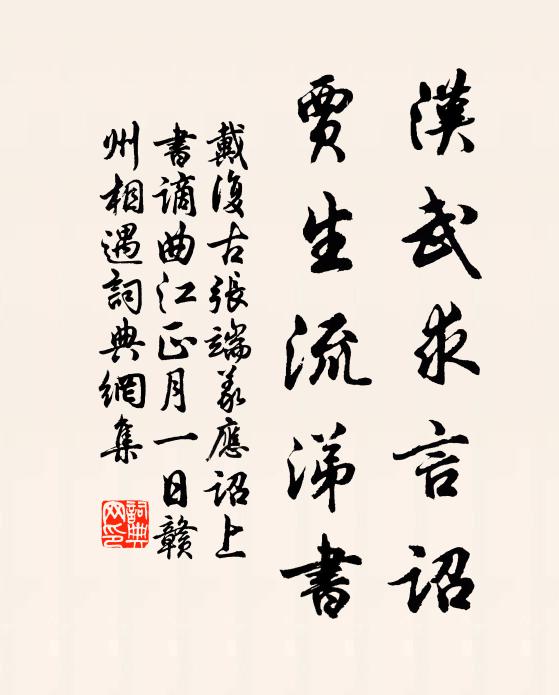 漢武求言詔
賈生流涕書
戴復古張端義應詔上
書謫曲江正月一日贛
州相遇詞典網集
詞典
网印